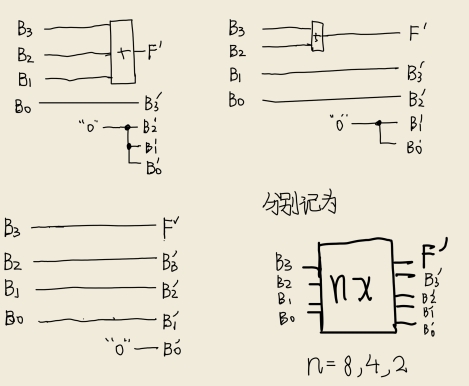 B₃
B₂
B₁
+
F′
B₀
B₃′
"0"
B₂′
B₁′
B₀′
B₃
B₂
+
F′
B₁
B₃′
B₀
B₂′
"0"
B₁′
B₀′
B₃
F′
B₂
B₃′
B₁
B₂′
B₀
B₁′
"0"
B₀′
分别记为
B₃
B₂
B₁
B₀
nx
F′
B₃′
B₂′
B₁′
B₀′
n=8,4,2